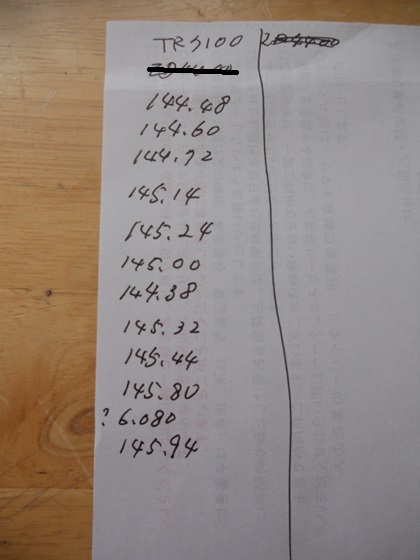 TR7100
144.48
144.60
144.72
145.14
145.24
145.00
144.38
145.32
145.44
145.80
? 6.080
145.94